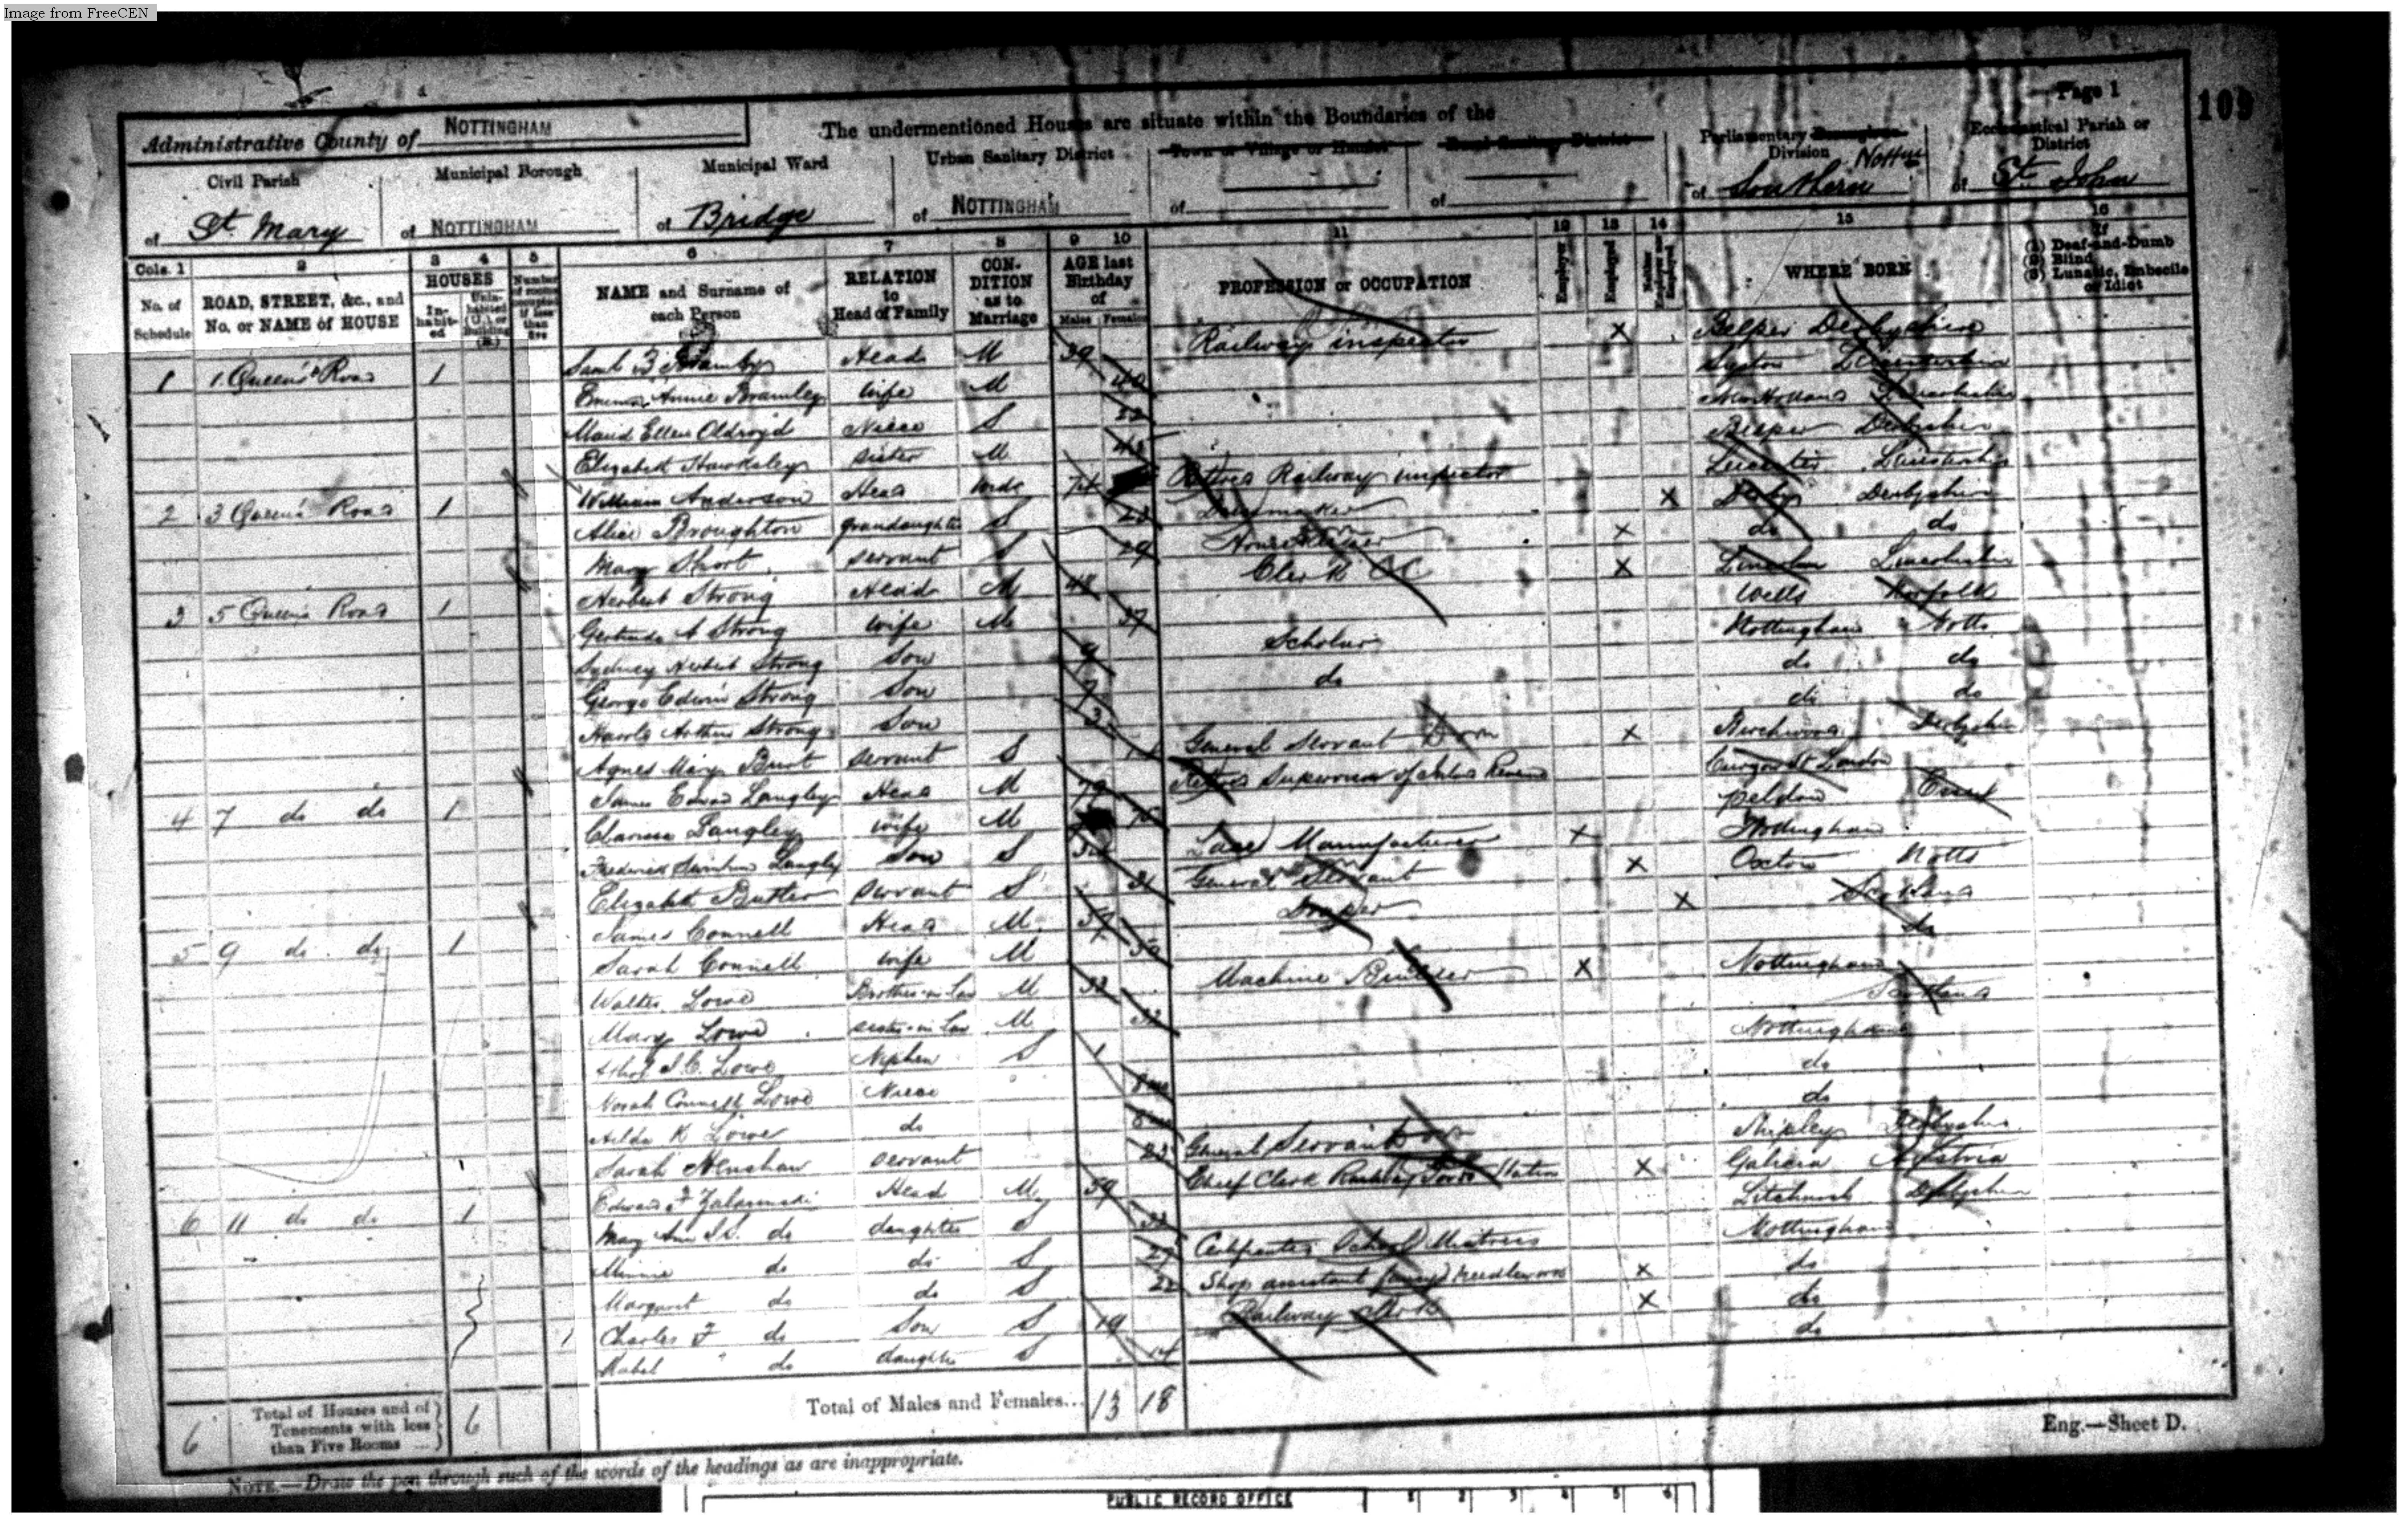 Image from FreeCEN
Page 1
109
Administrative County of NOTTINGHAM
The undermentioned Houses are situate within the Boundaries of the
Civil Parish of St. Mary
Municipal Borough of NOTTINGHAM
Municipal Ward of Bridge
Urban Sanitary District of NOTTINGHAM
Town or Village or Hamlet of
Rural Sanitary District of
Parliamentary Borough or Division of Southern Notts
Ecclesiastical Parish or District of St. John
Cols. 1 2 3 4 5 6 7 8 9 10 11 12 13 14 15 16
No. of Schedule
ROAD, STREET, &c., and No. or NAME of HOUSE
HOUSES
Inhabited
Uninhabited (U.), or Building (B.)
Number of rooms occupied if less than five
NAME and Surname of each Person
RELATION to Head of Family
CONDITION as to Marriage
AGE last Birthday of
Males Females
PROFESSION or OCCUPATION
Employer
Employed
Neither Employer nor Employed
WHERE BORN
If (1) Deaf-and-Dumb (2) Blind (3) Lunatic, Imbecile or Idiot
1 1 Queen's Road 1 Bramley Head M 39 Railway inspector X Belper Derbyshire
Emma Annie Bramley Wife M 40 Leicestershire
Maud Ellen Oldroyd Niece S 22 New Holland Lincolnshire
Elizabeth Hawksley Sister M Belper Derbyshire
2 3 Queen's Road 1 William Anderson Head 74 Railway inspector X Leicester Leicestershire
Alice Broughton Grandaughter S 23 Dressmaker Derby Derbyshire
Mary Short Servant S 29 X do do
3 5 Queen's Road 1 Herbert Strong Head M 48 Clerk X Lincoln Lincolnshire
Gertrude A Strong Wife M 37 Wells Norfolk
Sydney Herbert Strong Son 9 Scholar Nottingham Notts
George Edwin Strong Son 7 do do do
Harold Arthur Strong Son 3 do do
Agnes Mary Burt Servant S General Servant Dom X Birchwood Derbyshire
4 7 do do 1 James Langley Head M 79 Supervisor of Inland Revenue London
Clarissa Langley Wife M Peldon Essex
Frederick Langley Son S Lace Manufacturer X Nottingham
Elizabeth Butler Servant S 31 General Servant X Oxton Notts
5 9 do do 1 James Connell Head M 39 Draper X Scotland
Sarah Connell Wife M do
Walter Lowe Brother in Law M 33 Machine Builder X Nottingham
Mary Lowe Sister in Law M 32 Scotland
J. C. Lowe Nephew S 1 Nottingham
Norah Connell Lowe Niece do
Hilda K Lowe do do
Sarah Henshaw Servant 22 General Servant Dom Shipley Derbyshire
6 11 do do 1 Edward F Head 59 Chief Clerk Station X Galicia Austria
Mary Ann do daughter S 32 Litchurch Derbyshire
Minnie do do S 27 School Mistress Nottingham
Margaret do do S 22 Shop assistant fancy needlework X do
Charles F do Son S 19 Railway Clerk X do
Mabel do daughter S 14 do
6 Total of Houses and of Tenements with less than Five Rooms ... 6
Total of Males and Females... 13 18
Eng.—Sheet D.
NOTE.—Draw the pen through such of the words of the headings as are inappropriate.
PUBLIC RECORD OFFICE 1 2 3 4 5 6